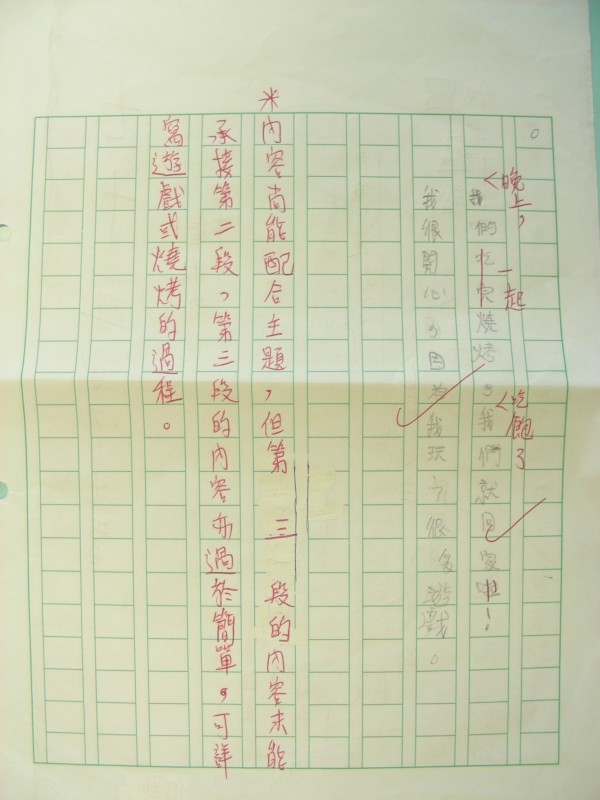 。
晚上，
一起
吃飽了
我們燒烤，我們就回家啦！
我很開心，因為我玩了很多遊戲。
＊內容尚能配合主題，但第三段的內容未能
承接第二段，第三段的內容亦過於簡單，可詳
寫遊戲或燒烤的過程。